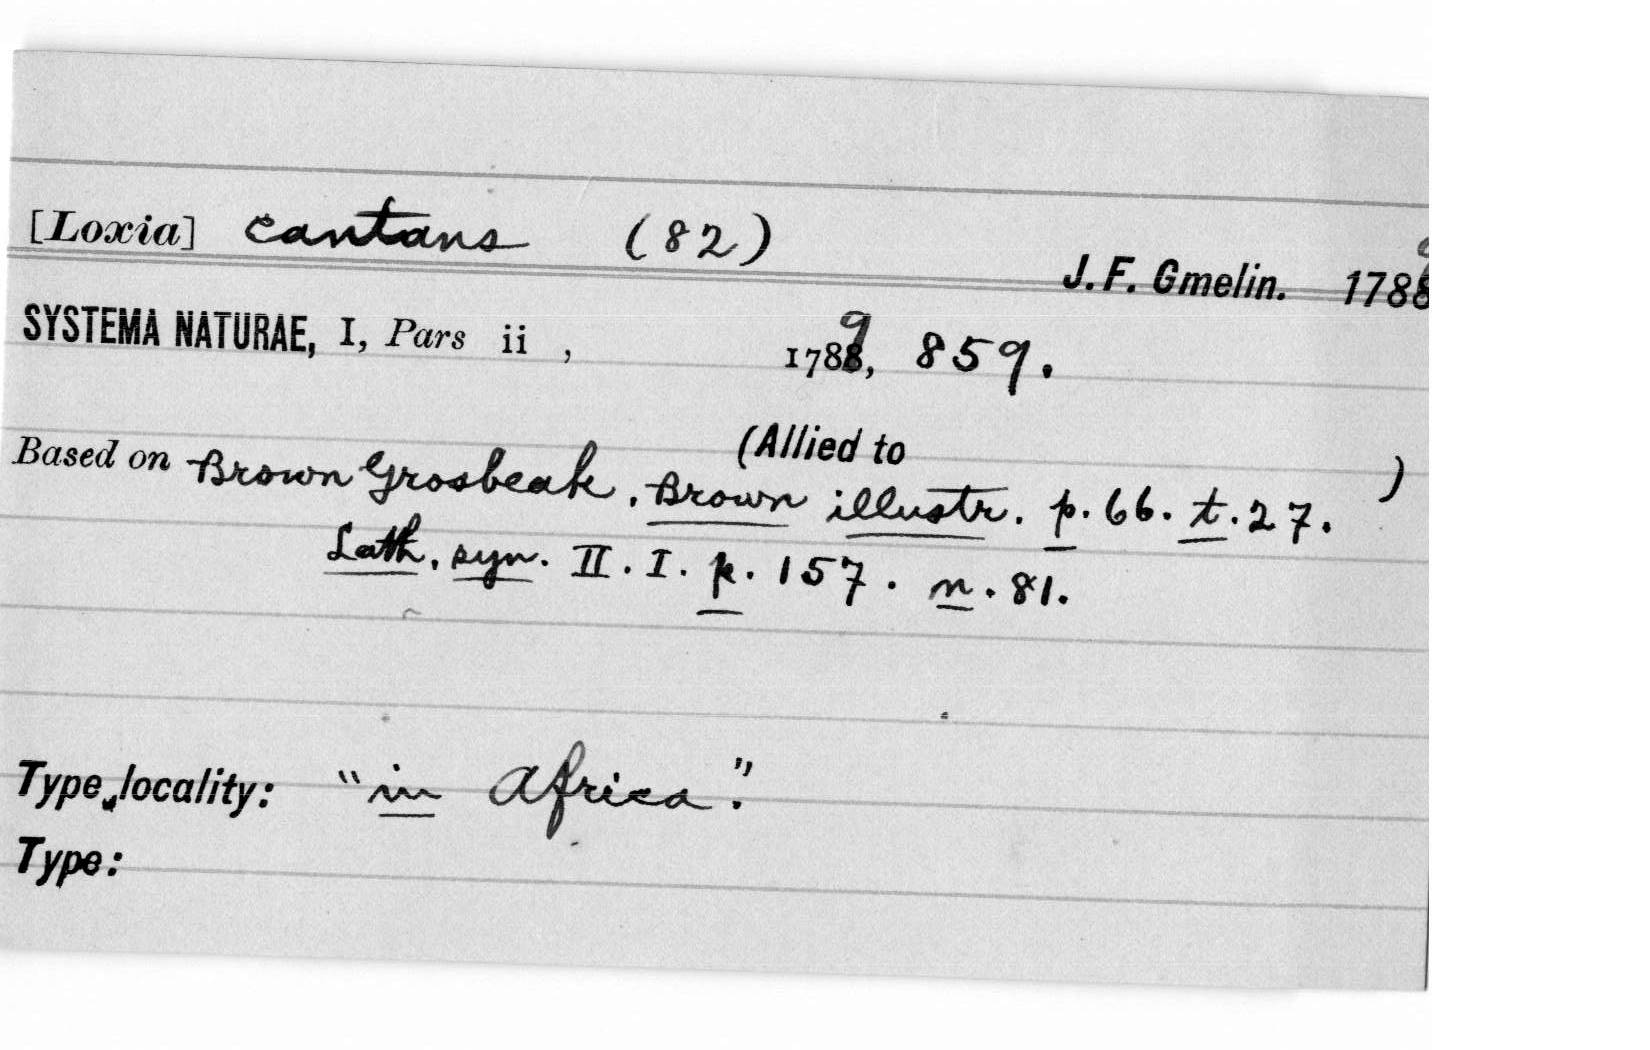 [Loxia] cantans (82)
J. F. Gmelin. 1789
SYSTEMA NATURAE, I, Pars ii , 1789, 859.
(Allied to )
Based on Brown Grosbeak. Brown illustr. p. 66. t. 27.
Lath. syn. II. I. p. 157. n. 81.
Type locality: "in Africa."
Type: